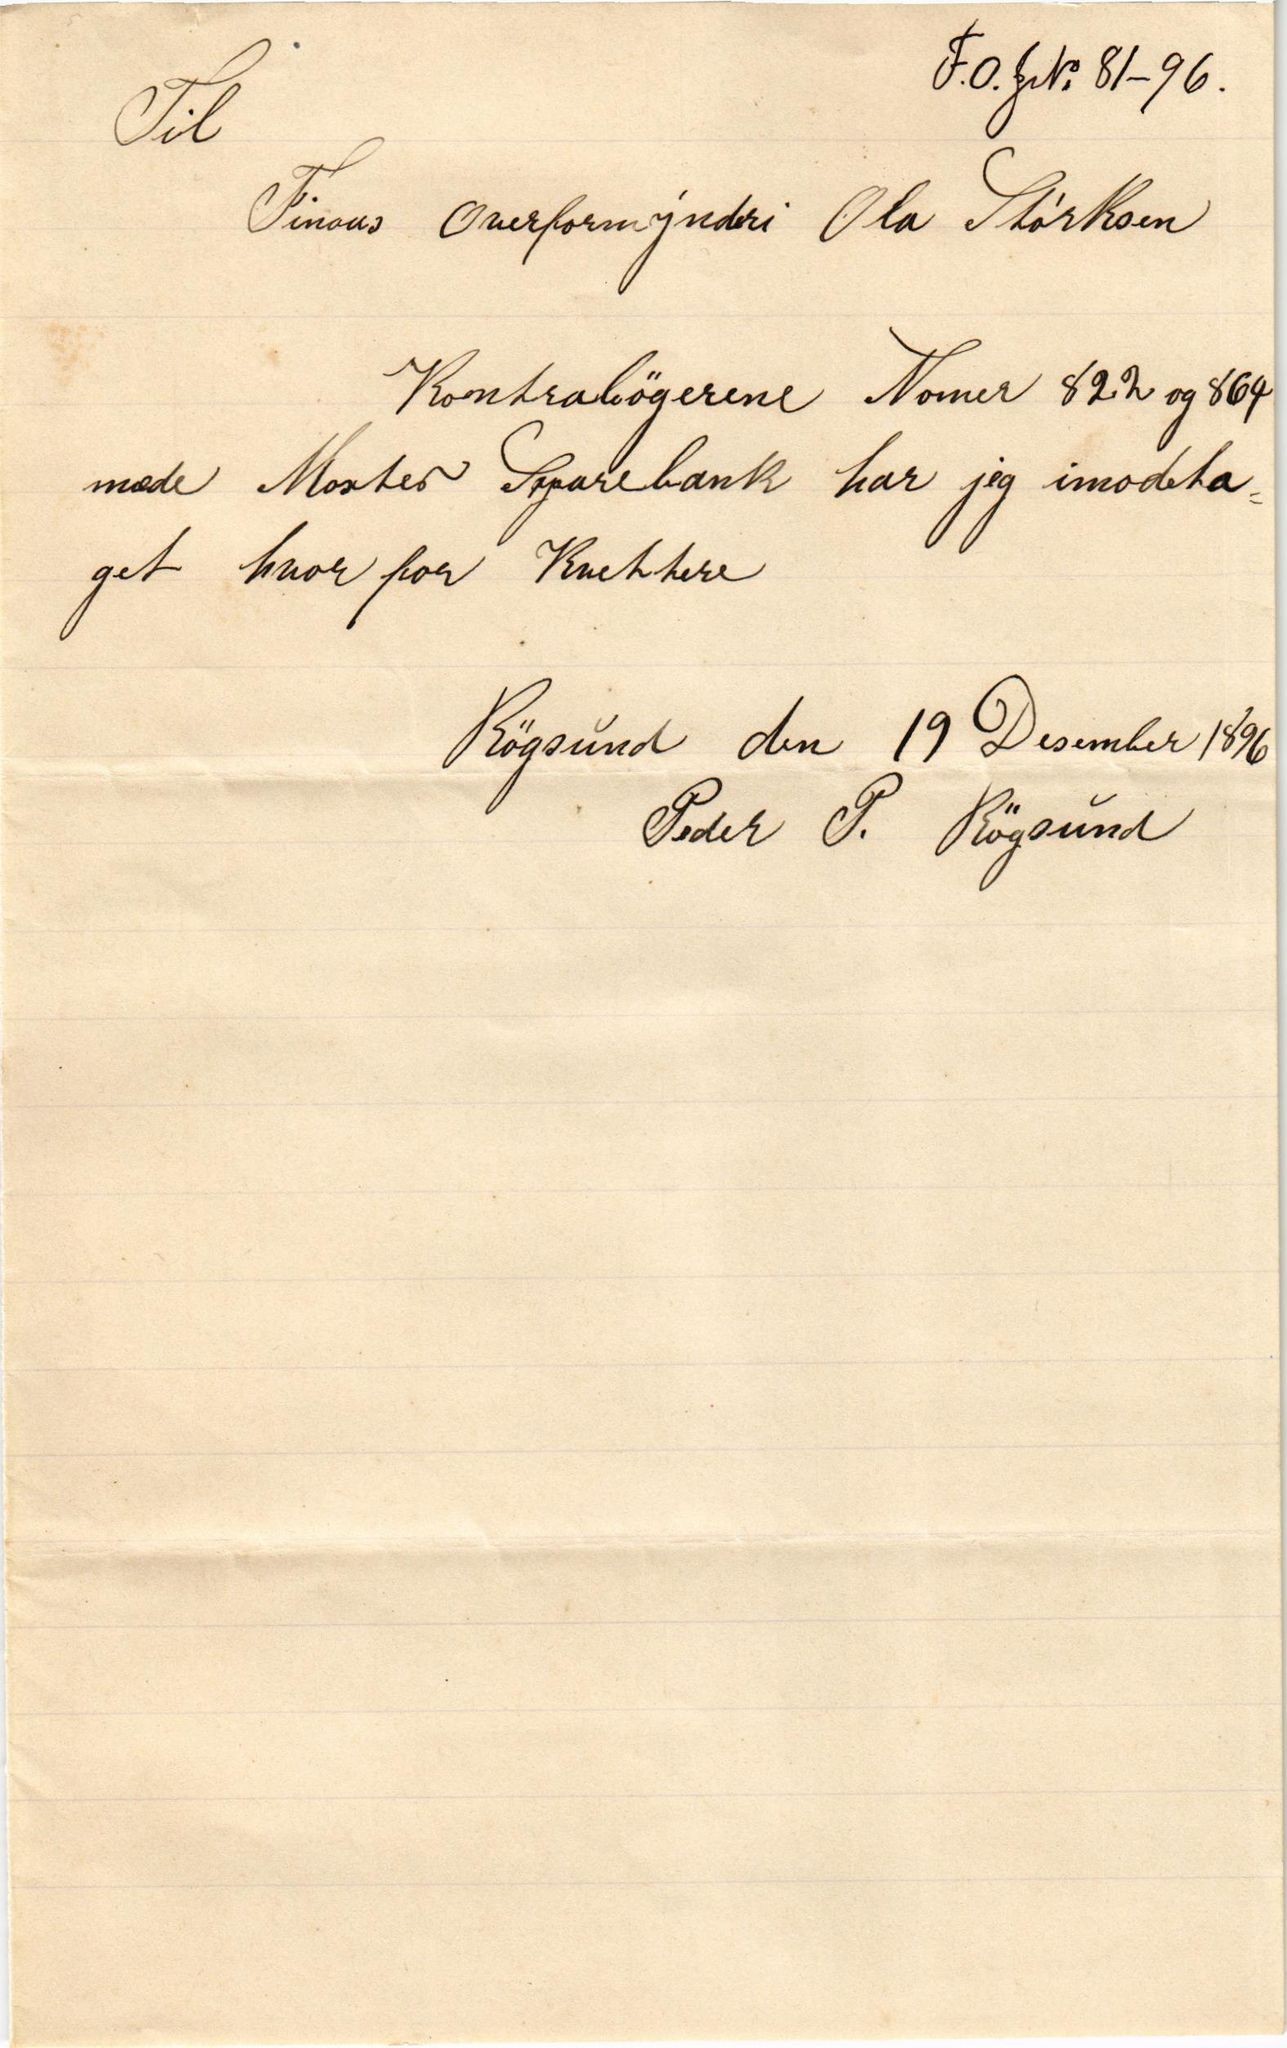 F.O. J.No. 81-96.
Til
Finaas Overformÿnderi Ola Størksen
Kontrabögerene Nomer 822 og 864
mede Moster Sparebank har jeg imodta=
get hvor for Kvettere
Rögsŭnd den 19 Desember 1896
Peder P. Rögsŭnd